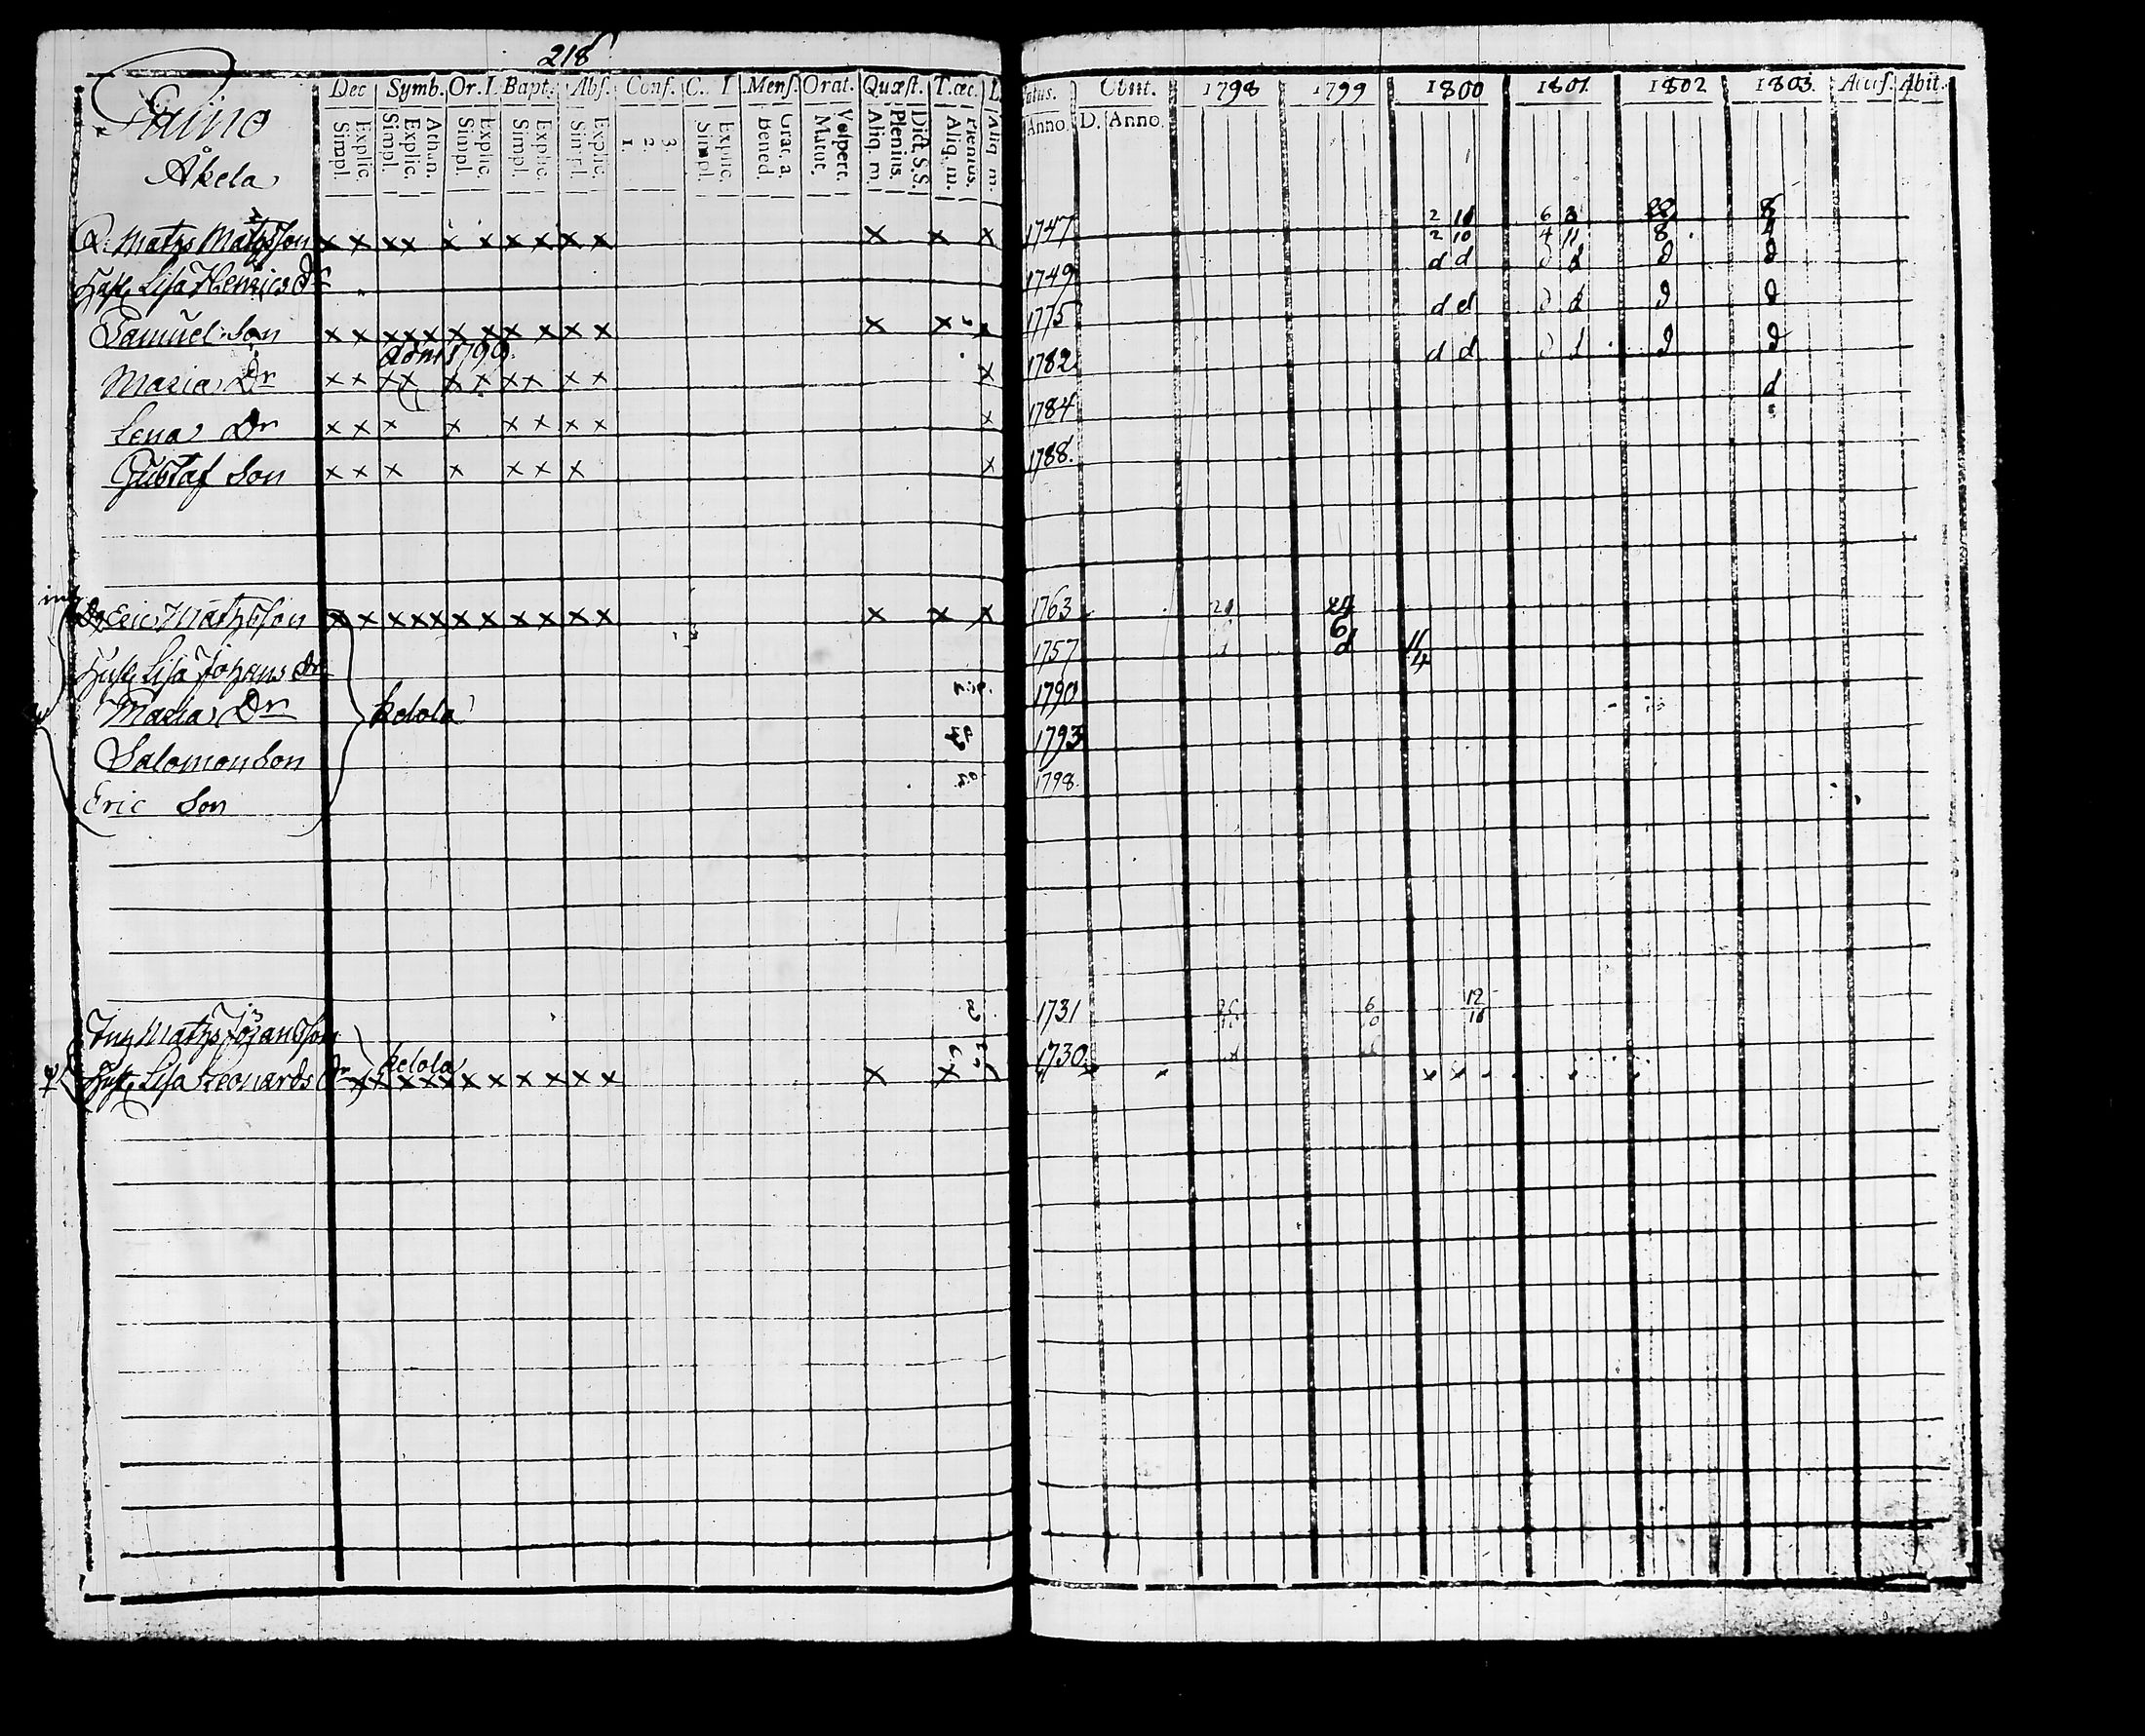 218
Dec. Symb. Or. I. Bapt. Abs. Conf. C. I Mens. Orat. Quæst. T. œc. L.
Simpl. Explic. Simpl. Explic. Athan. Simpl. Explic. Simpl. Explic. Simpl. Explic. 1. 2. 3. Simpl. Explic. Bened. Grat. a. Matut. Vespert. Aliq. m. Plenius. Dict. S.S. Aliq. m. Plenius. Aliq. m.
Obiit. 1798 1799 1800 1801 1802 1803 Acces. Abit.
Anno. D. Anno.
Åkela
Matzs Matzsson x x x x x x x x x x x x x 1747 2 10 6 3 8
2 10 4 11 8 4
Lisa Henrics Dr 1749 d d d d d d
Samuel Son x x x x x x x x x x x x x x 1775 d d d d d d
1799
Maria Dr x x x x x x x x x x x 1782 d d d d d d
Lena Dr x x x x x x x x x 1784 d
Gustaf Son x x x x x x x x 1788.
Eric Matzsson x x x x x x x x x x x x x x 1763 24
6
Lisa Johans Dr 1757 d 11/4
Maria Dr kelola 1790
Salomon Son 1793
Eric Son 1798.
Matzs Johansson 1731 6 12
10 10
Lisa Leonards Dr kelola x x x x x x x x x x x x x 1730